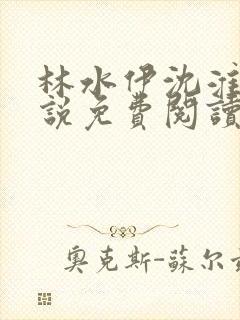 林水伊沈淮
說免費閱讀
奧克斯-蘇尔